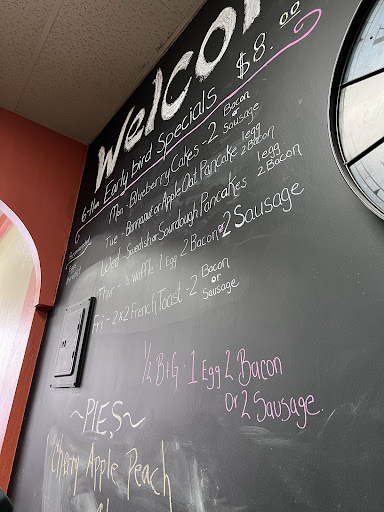 Welco
6-11am Early bird Specials $8.00
Mon - Blueberry Cakes - 2 Bacon or Sausage
Tue - Bananaout or Apple Oat Pancake 1egg 2 Bacon
Wed - Swedish or Sourdough Pancakes 1egg 2 Bacon
Thir - ½ Waffle 1 Egg 2 Bacon or 2 Sausage
Fri - 2x2 French Toast - 2 Bacon or Sausage
½ B+G 1 Egg 2 Bacon
Or 2 Sausage.
~PIES~
Cherry Apple Peach